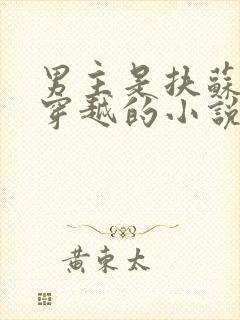 男主是扶蘇
穿越的小說
黃東太